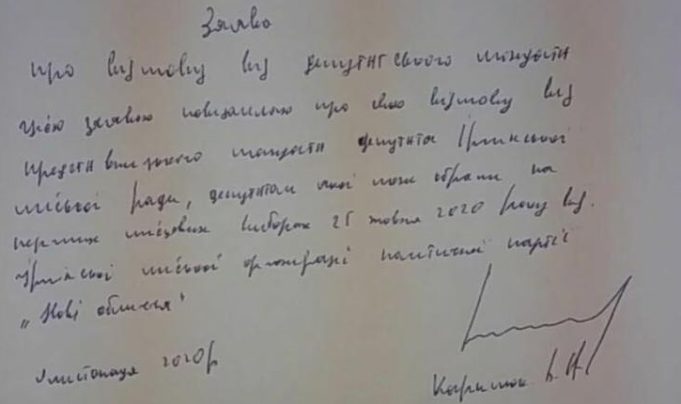 Заява
про відмову від депутатського мандата
Цією заявою повідомляю про свою відмову від
представницького мандата депутата Ірпінської
міської ради, депутатом якої мене обрали на
перших місцевих виборах 25 жовтня 2020 року від
Ірпінської міської організації політичної партії
„Нові обличчя"
листопада 2020р